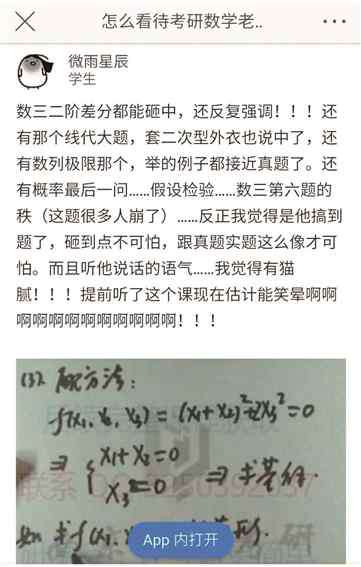 怎么看待考研数学老..
微雨星辰
学生
数三二阶差分都能砸中，还反复强调！！！还
有那个线代大题，套二次型外衣也说中了，还
有数列极限那个，举的例子都接近真题了。还
有概率最后一问……假设检验……数三第六题的
秩（这题很多人崩了）……反正我觉得是他搞到
题了，砸到点不可怕，跟真题实题这么像才可
怕。而且听他说话的语气……我觉得有猫
腻！！！提前听了这个课现在估计能笑晕啊啊
啊啊啊啊啊啊啊啊啊啊！！！
(3). 配方法：
f(x₁, x₂, x₃) = (x₁+x₂)²+2x₃² = 0
⇒ { x₁+x₂=0
x₃=0
⇒ 求基础解.
联系
如 求f(x₁,
研
App 内打开